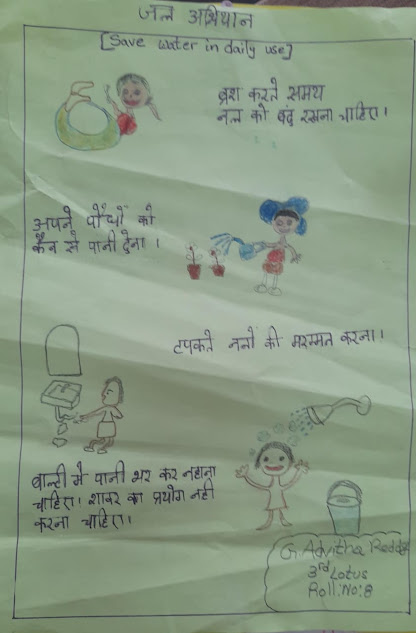 जल अभियान
[Save water in daily use]
ब्रश करते समय
नल को बंद रखना चाहिए।
अपने पौधों को
कैन से पानी देना।
टपकते नलों की मरम्मत करना।
बाल्टी मे पानी भर कर नहाना
चाहिए। शावर का प्रयोग नही
करना चाहिए।
G. Advitha Reddy
3rd Lotus
Roll.No:8